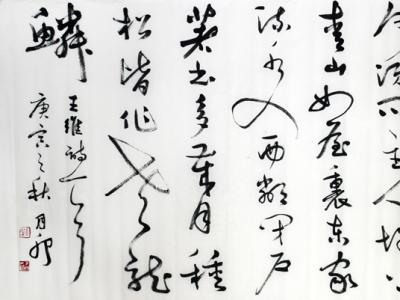 何須問主人城上
青山如屋裏東家
流水入西鄰閉户
著書多歲月種
松皆作老龍
鱗
王維詩一首
庚寅之秋月